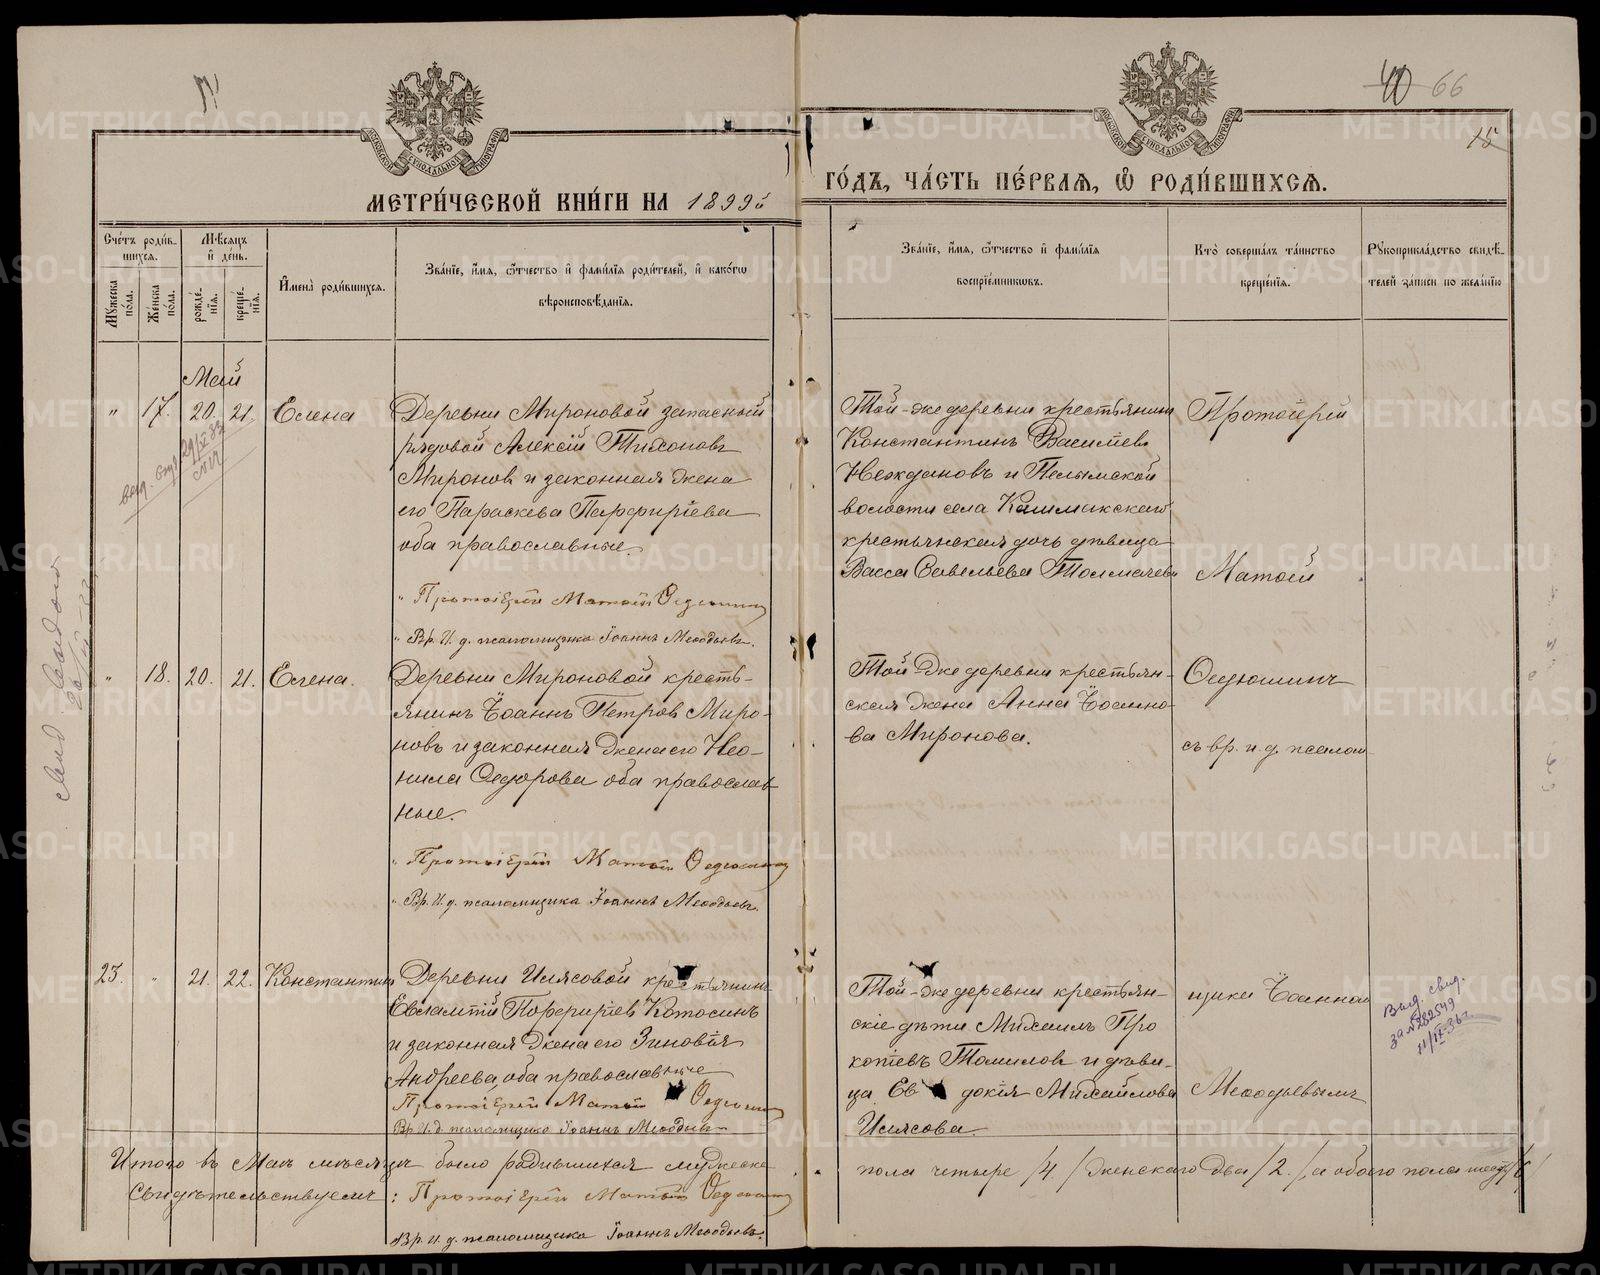 40 66
15
МЕТРИ́ЧЕСКОЙ КНИ́ГИ НА 1899й
ГО́ДЪ, ЧА́СТЬ ПЕ́РВАЯ, Ѽ РОДИ́ВШИХСЯ.
Сче́тъ роди́в-
шихся.
Мꙋ́жеска по́ла.
Же́нска по́ла.
Мѣ́сяцъ и҆ де́нь.
рожде́-нїя.
креще́-нїя.
И҆мена̀ роди́вшихся.
Зва́нїе, и҆́мя, ѻ҆́тчество и҆ фами́лїя роди́телей, и҆ како́гѡ
вѣроисповѣ́данїя.
Зва́нїе, и҆́мя, ѻ҆́тчество и҆ фами́лїя
воспрїе́мникѡвъ.
Кто̀ соверша́лъ та́инство
креще́нїя.
Рꙋкоприкла́дство свидѣ́-
телей за́писи по жела́нїю
Май
" 17. 20. 21. Елена
Деревни Мироновой запасный
рядовой Алексій Тихоновъ
Мироновъ и законная жена
его Параскева Парфирiева
оба православные.
" Протоіерей Матѳій Ѳедюшинъ
" Вр. И. д. псаломщика Іоаннъ Меѳодьевъ.
Той-же деревни крестьянинъ
Константинъ Васильевъ
Неждановъ и Пелымской
волости села Кашмакскаго
крестьянская дочь дѣвица
Васса Савельева Толмачева
Протоіерей
Матѳій
выд. 29/IV 83
" 18. 20. 21. Елена.
Деревни Мироновой кресть-
янинъ Іоаннъ Петровъ Миро-
новъ и законная жена его Нео-
нила Ѳедорова оба православ-
ные.
" Протоіерей Матѳій Ѳедюшинъ
" Вр. И. д. псаломщика Іоаннъ Меѳодьевъ.
Той же деревни крестьян-
ская жена Анна Іоанно-
ва Миронова.
Ѳедюшинъ
съ вр. и. д. псалом-
23. " 21. 22. Константинъ
Деревни Илясовой крестьянинъ
Евлампій Порфирiевъ Котосинъ
и законная жена его Зиновія
Андреева, оба православные
Протоіерей Матѳій Ѳедюшинъ
Вр. И. д. псаломщика Іоаннъ Меѳодьевъ
Той-же деревни крестьян-
скіе дѣти Михаилъ Про
копіевъ Томилов и дѣви-
ца Евдокія Михайлова
Илясова.
щика Іоанном
Меѳодьевымъ
Выд. свид.
за № 282549
11/IX-36г
Итого въ Маѣ мѣсяцѣ было родившихся мужеска
пола четыре /4/ женскаго два /2./, а обоего пола шесть /6/
Свидѣтельствуемъ: Протоіерей Матѳій Ѳедюшинъ
Вр. и. д. псаломщика Іоаннъ Меѳодьевъ.
METRIKI.GASO-URAL.RU